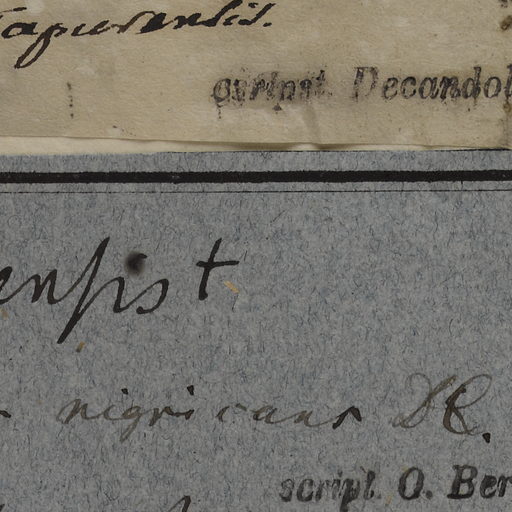 Tapurensis.
scripsit. Decandol
ensis †
nigricans DC.
script. O. Ber